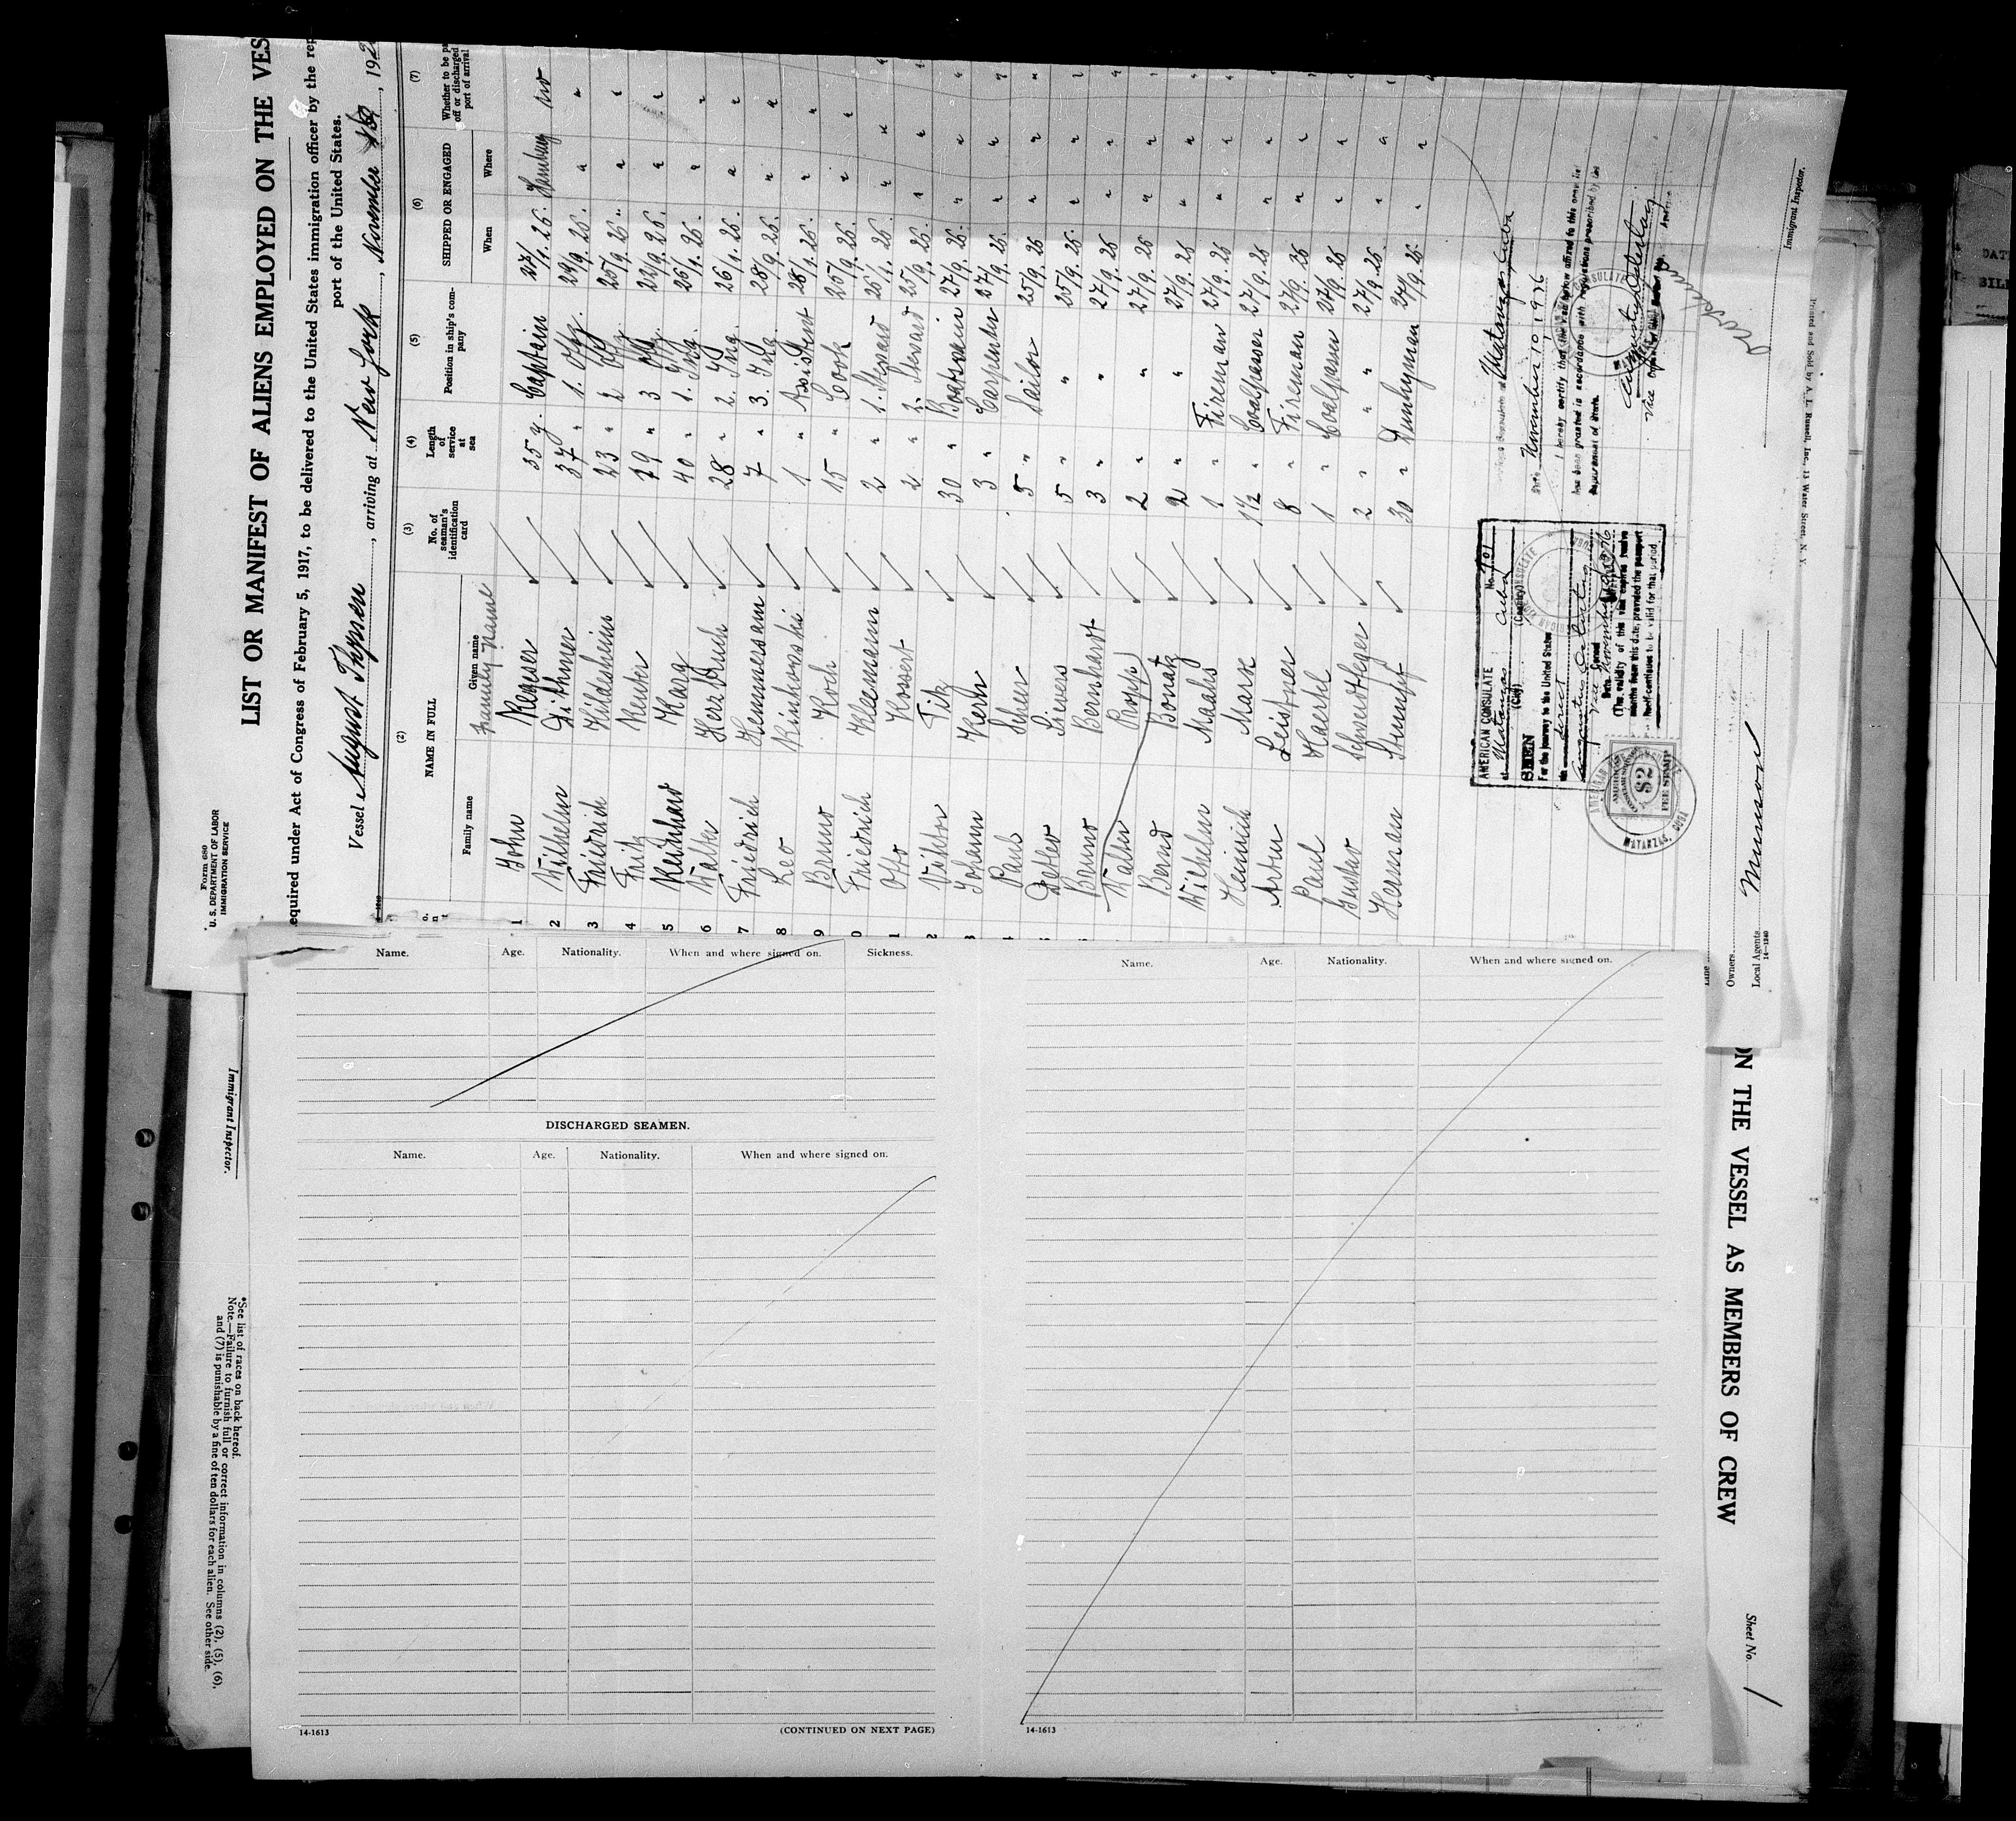 Form 680
U. S. DEPARTMENT OF LABOR
IMMIGRATION SERVICE
LIST OR MANIFEST OF ALIENS EMPLOYED ON THE VES
equired under Act of Congress of February 5, 1917, to be delivered to the United States immigration officer by the rep
port of the United States.
Vessel August Thyssen, arriving at New York, November 192
(2) (3) (4) (5) (6) (7)
NAME IN FULL
Family name Given name
Family name
No. of seaman's identification card
Length of service at sea
Position in ship's company
SHIPPED OR ENGAGED
When Where
Whether to be pa
off or discharged
port of arrival
1 John 35 y. Captain 27/9. 26. Hamburg no
2 Wilhelm Dithmer 37 " 1. Offz. 29/9. 26. " "
3 Friedrich Hildesheim 23 " 2 Offz. 25/9. 26. " "
4 Fritz Reuter 19 " 3 Offz. 22/9. 26. " "
5 Reinhard Karg 40 " 1. Ing. 26/9. 26. " "
6 Walter Herbruch 28 " 2. Ing. 26/9. 26. " "
7 Friedrich Hemmersam 7 " 3. Ing. 28/9. 26. " "
8 Leo Rinkowski 1 " Assistent 28/9. 26. " "
9 Bruno Koch 15 " Cook 25/9. 26. " "
0 Friedrich Kleemann 2 " 1. Steward 25/9. 26 " "
1 Otto Kossert 2 " 2. Steward 25/9. 26. " "
2 Viktor Tik 30 " Boatswain 27/9. 26. " "
3 Johann Kern 3 " Carpenter 27/9. 26. " "
4 Paul Scheer 5 " Sailor 25/9. 26 " "
5 Detlev Sievers 5 " " 25/9. 26. " "
Bruno Bernhardt 3 " " 27/9. 26 " "
Walter Propp 2 " " 27/9. 26 " "
Bernd Bonatz 2 " " 27/9. 26 " "
Wilhelm Maahs 1 " Fireman 27/9. 26 " "
Heinrich Mark 1 1/2 " Coalpasser 27/9. 26 " "
Artur Leistner 8 " Fireman 27/9. 26 " "
Paul Haertel 1 " Coalpasser 27/9. 26 " "
Gustav Schwerdtfeger 2 " " 27/9. 26. " "
Herman Stumpf 30 " Dunkyman 27/9. 26. " "
AMERICAN CONSULATE
at Matanzas Cuba No. 901
(City) (Country)
SEEN
For the journey to the United States
Vice Consul
Date November
(The validity of this visa expires twelve
months from this date, provided the passport
itself continues to be valid for that period.
FEE STAMP
$2
MATANZAS
Matanzas, Cuba
Date November 10, 1926
I hereby certify that the visa below affixed to this crew list
has been granted in accordance with regulations prescribed by the
Department of State.
Immigrant Inspector.
Owners
Local Agents Munson
14—1240
Printed and Sold by A. L. Russell, Inc., 13 Water Street, N. Y.
Name. Age. Nationality. When and where signed on. Sickness.
DISCHARGED SEAMEN.
Name. Age. Nationality. When and where signed on.
14-1613
(CONTINUED ON NEXT PAGE)
Name. Age. Nationality. When and where signed on.
14-1613
Immigrant Inspector.
*See list of races on back hereof.
Note.—Failure to furnish full or correct information in columns (2), (5), (6),
and (7) is punishable by a fine of ten dollars for each alien. See other side.
ON THE VESSEL AS MEMBERS OF CREW
Sheet No. 1
DAT